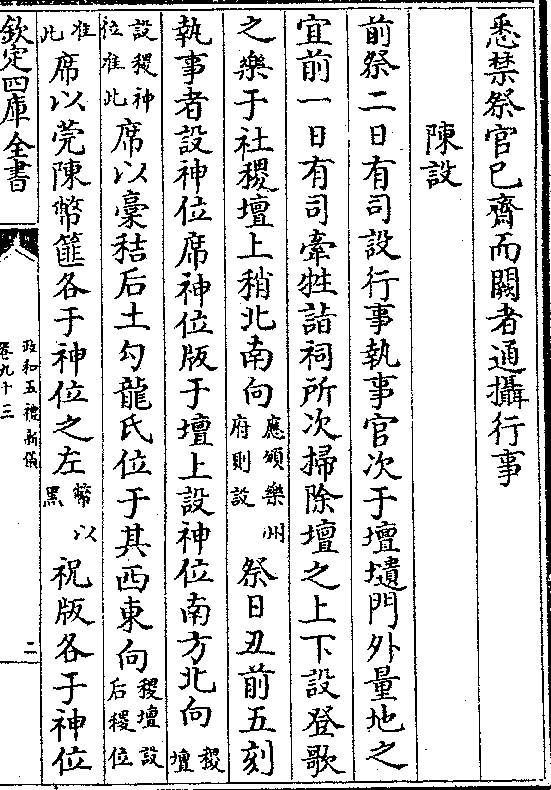 悉禁祭官已齋而闕者通攝行事
陳設
前祭二日有司設行事執事官次于壇壝門外量地之
宜前一日有司牽牲詣祠所次掃除壇之上下設登歌
之樂于社稷壇上稍北南向應頒樂州府則設祭日丑前五刻
執事者設神位席神位版于壇上設神位南方北向稷壇
設稷神位准此席以藁秸后土勾龍氏位于其西東向稷壇設后稷位
准此席以莞陳幣篚各于神位之左幣以黑祝版各于神位
欽定四庫全書
政和五禮新儀
卷九十三
二